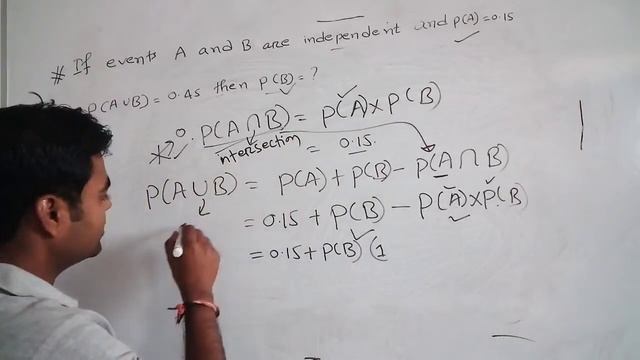 * If events A and B are independent and P(A)=0.15
P(A∪B) = 0.45 then P(B) = ?
P(A∩B) = P(A)×P(B)
intersection = 0.15.
P(A∪B) = P(A) + P(B) - P(A∩B)
= 0.15 + P(B) - P(A)×P(B)
= 0.15 + P(B) (1